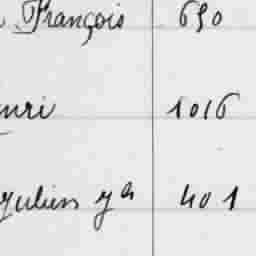 François 690
nri 1016
Julien ya 401